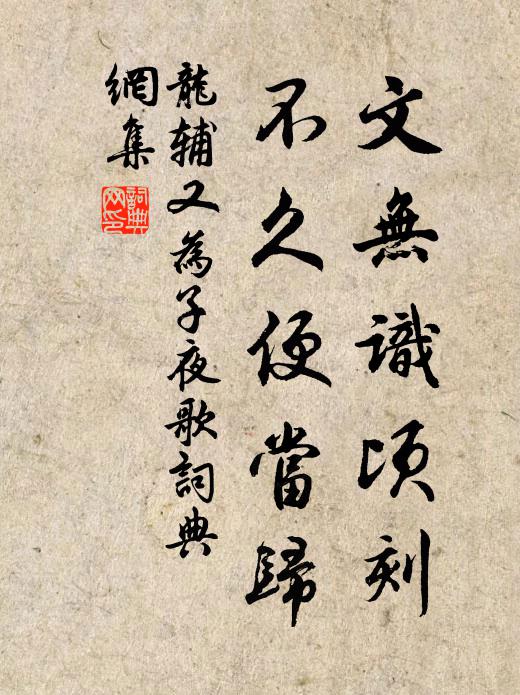 文無識頃刻
不久便當歸
龍輔又為子夜歌詞典
網集
詞典網印